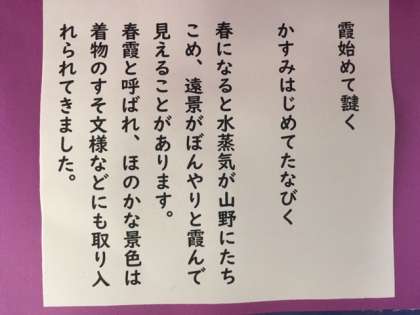 霞始めて靆く
かすみはじめてたなびく
春になると水蒸気が山野にたち
こめ、遠景がぼんやりと霞んで
見えることがあります。
春霞と呼ばれ、ほのかな景色は
着物のすそ文様などにも取り入
れられてきました。